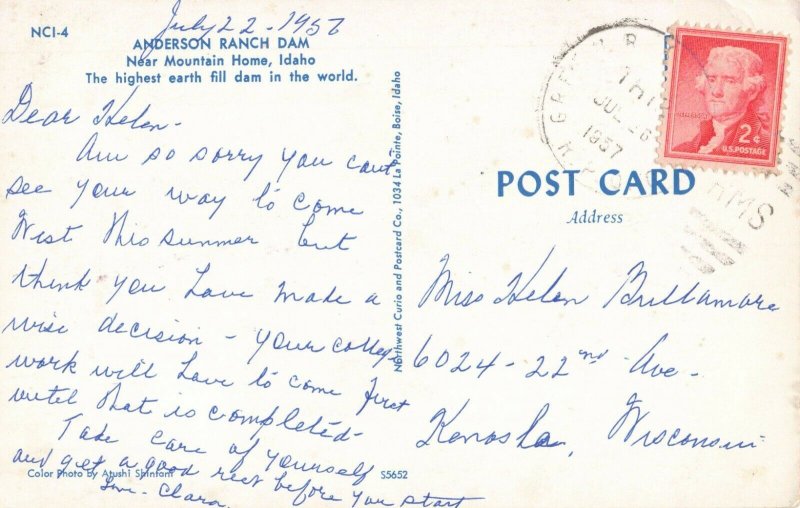 July 22 - 1957
NCI-4
ANDERSON RANCH DAM
Near Mountain Home, Idaho
The highest earth fill dam in the world.
Dear Helen -
Am so sorry you cant
see your way to come
West this summer but
think you have made a
wise decision - your college
work will have to come first
until that is completed -
Take care of yourself
and get a good rest before you start
Love - Clara.
Color Photo by Atushi Shintani
S5652
Northwest Curio and Postcard Co., 1034 La Pointe, Boise, Idaho
JUL 26
1957
2¢
U.S. POSTAGE
POST CARD
Address
Miss Helen Bullamore
6024 - 22nd Ave -
Kenosha, Wisconsin